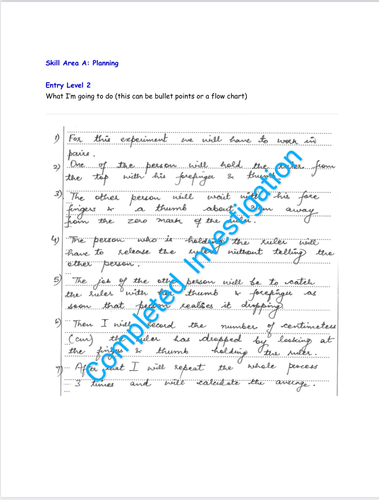 Skill Area A: Planning
Entry Level 2
What I'm going to do (this can be bullet points or a flow chart)
1) For this experiment we will have to work in
pairs.
2) One of the person will hold the ruler from
the top with his forefinger & thumb.
3) The other person will wait with his fore
fingers & a thumb about away
from the zero mark of the ruler.
4) The person who is holding the ruler will
have to release the ruler without telling the
other person.
5) The job of the other person will be to catch
the ruler with thumb forefinger as
soon that person realises it dropping.
6) Then I will record the number of centimeters
(cm) the ruler has dropped by looking at
the finger & thumb holding the ruler.
7) After that I will repeat the whole process
3 times and will calculate the average.
Completed Investigation